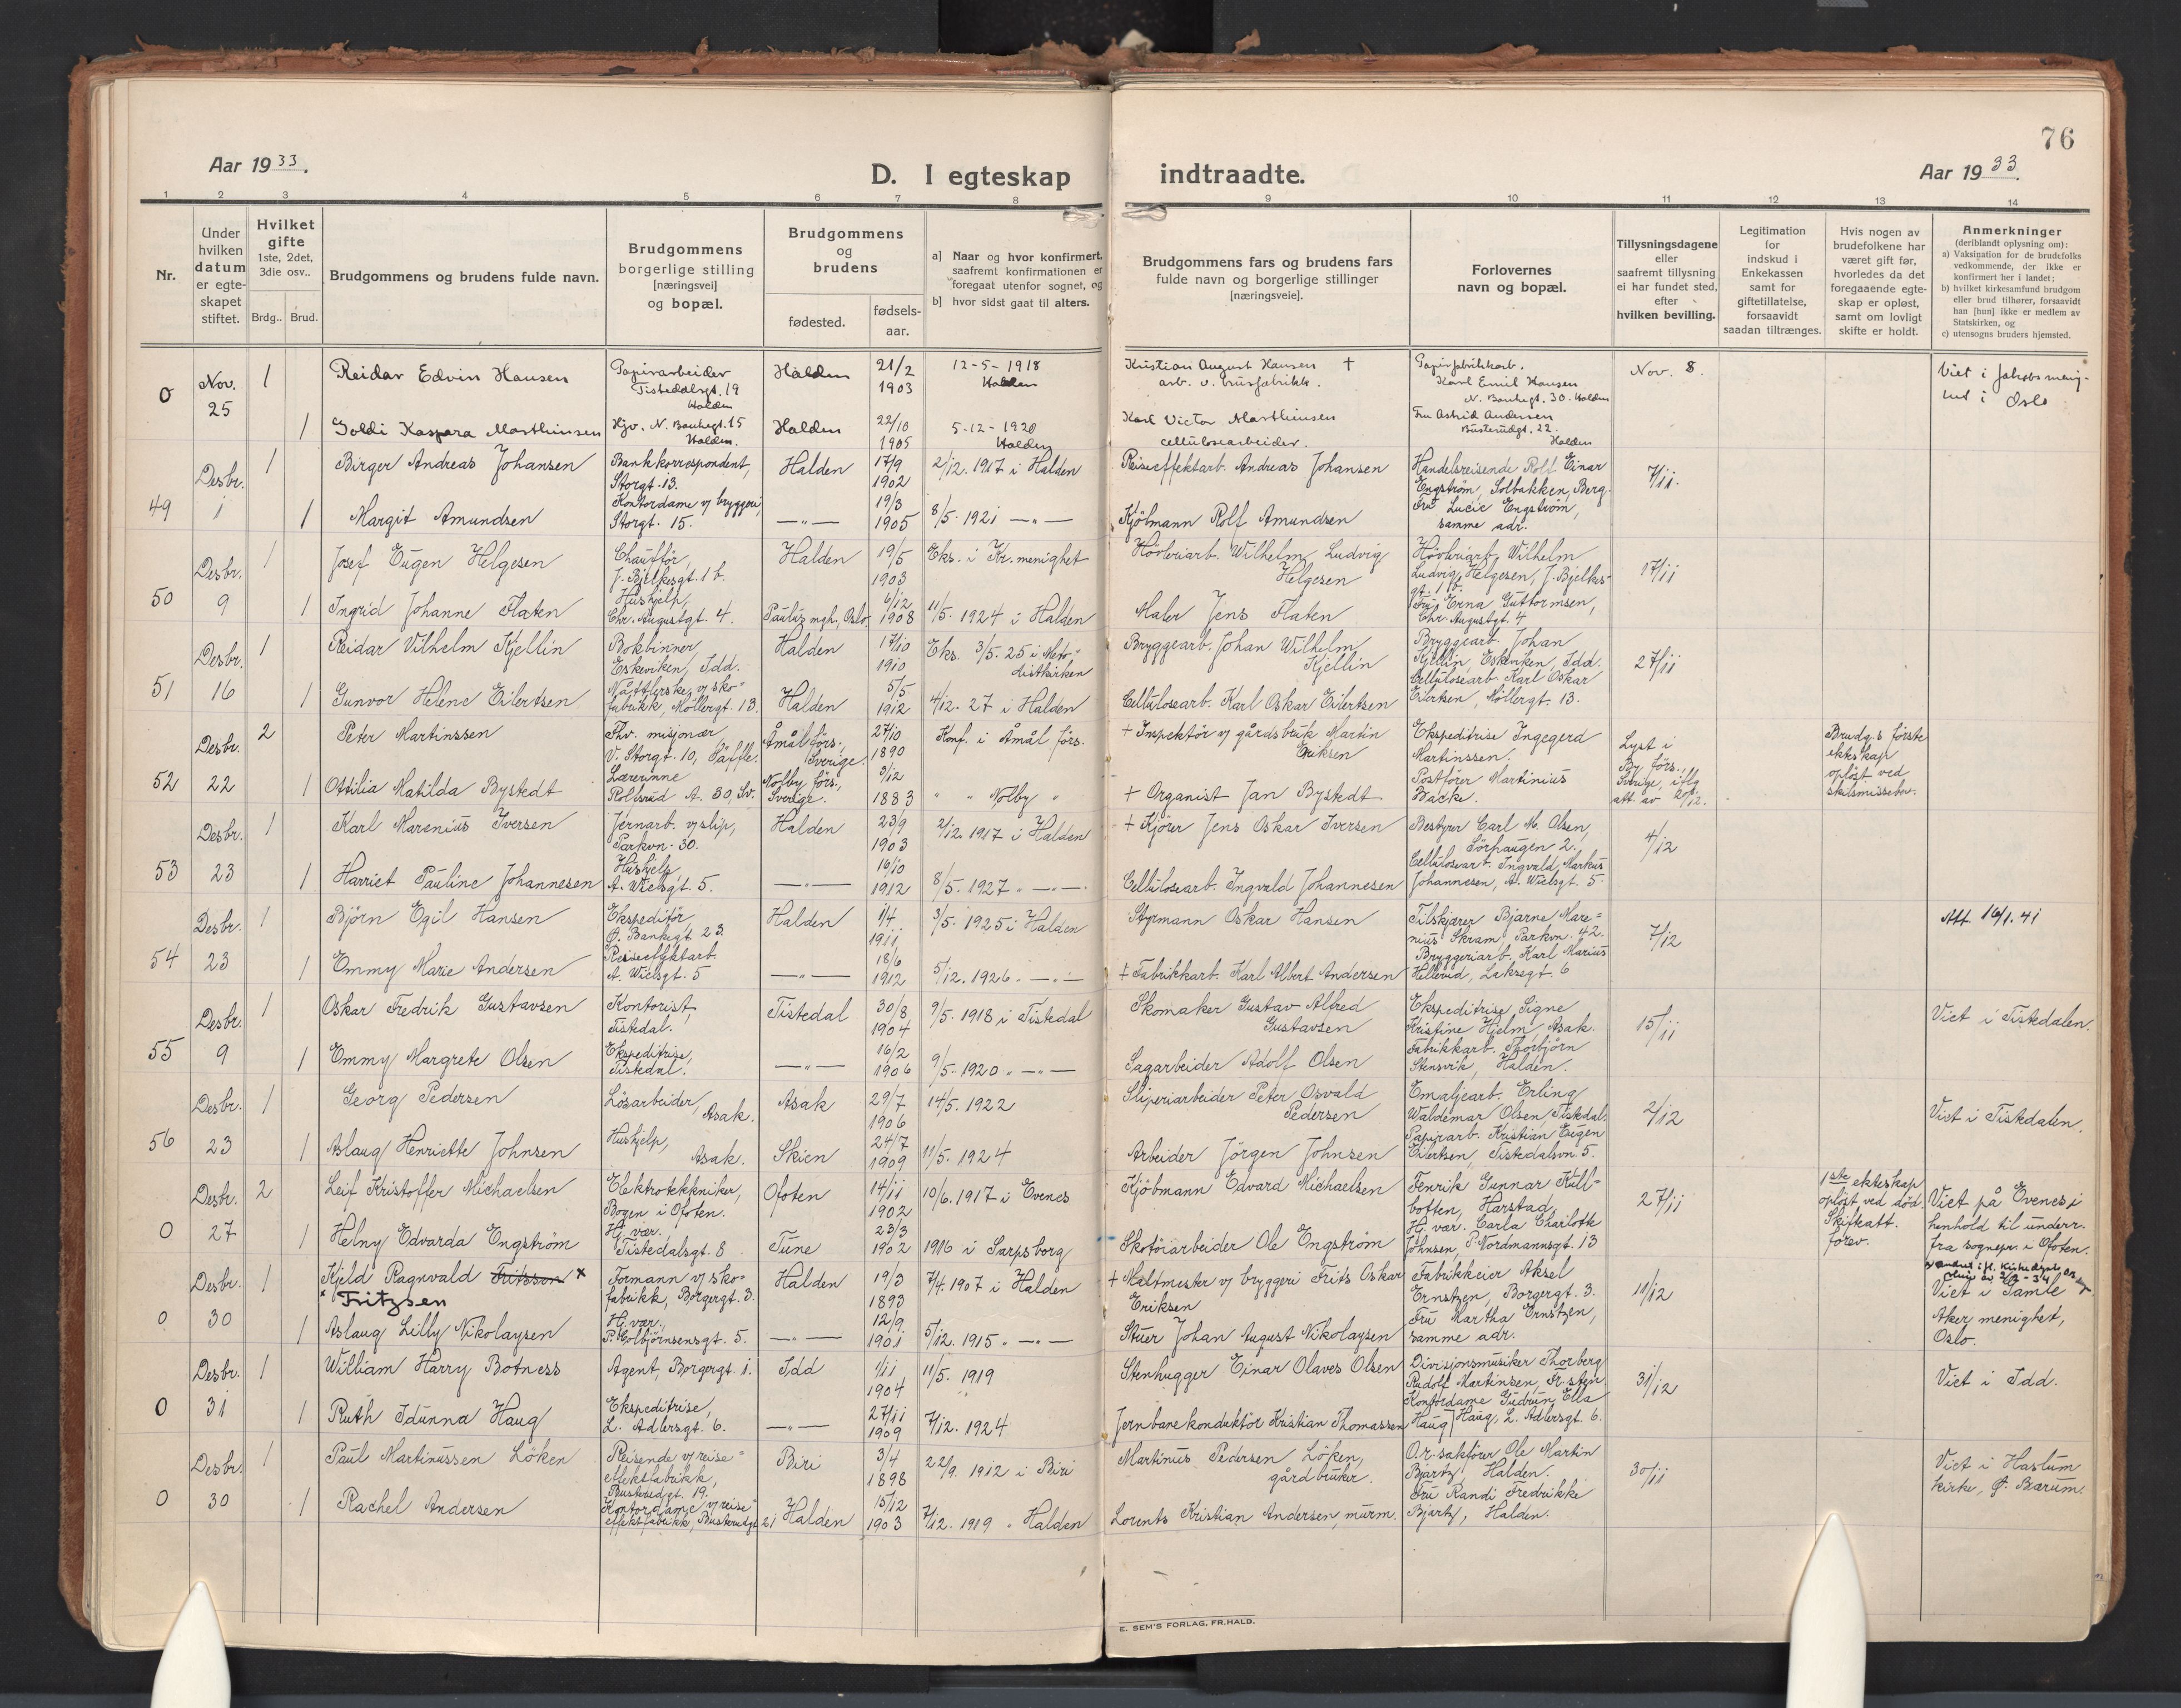 76
Aar 1933.
D. I egteskap indtraadte.
Aar 1933.
1 2 3 4 5 6 7 8 9 10 11 12 13 14
Nr.
Under hvilken datum er egte-skapet stiftet.
Hvilket gifte 1ste, 2det, 3die osv..
Brdg.. Brud.
Brudgommens og brudens fulde navn.
Brudgommens borgerlige stilling [næringsvei] og bopæl.
Brudgommens og brudens
fødested.
fødsels-aar.
a] Naar og hvor konfirmert, saafremt konfirmationen er foregaat utenfor sognet, og
b] hvor sidst gaat til alters.
Brudgommens fars og brudens fars fulde navn og borgerlige stillinger [næringsveie].
Forlovernes navn og bopæl.
Tillysningsdagene eller saafremt tillysning ei har fundet sted, efter hvilken bevilling.
Legitimation for indskud i Enkekassen samt for giftetillatelse, forsaavidt saadan tiltrænges.
Hvis nogen av brudefolkene har været gift før, hvorledes da det foregaaende egte-skap er opløst, samt om lovligt skifte er holdt.
Anmerkninger (deriblandt oplysning om):
a) Vaksination for de brudefolks vedkommende, der ikke er konfirmert her i landet;
b) hvilket kirkesamfund brudgom eller brud tilhører, forsaavidt han [hun] ikke er medlem av Statskirken, og
c) utensogns bruders hjemsted.
0 Nov. 25 1 Reidar Edvin Hansen Papirarbeider Tistedalsgt. 19 Halden Halden 21/2 1903 12-5-1918 Halden Kristian August Hansen † arb. v. brusfabrikk. Papirfabrikkarb. Karl Emil Hansen N. Bankegt. 30. Halden Nov. 8. Viet i Jakobs menig-het i Oslo
1 Goldi Kaspara Marthinsen Hjv. N. Bankegt. 15 Halden. Halden 22/10 1905 5-12-1920 Halden Karl Victor Marthinsen cellulosearbeider. Fru Astrid Andersen Busterudgt. 22. Halden
49 Desbr. 1 1 Birger Andreas Johansen Bankkorrespondent, Storgt. 13. Halden 17/9 1902 2/12. 1917 i Halden Reiseeffektarb. Andreas Johansen Handelsreisende Rolf Einar Engström, Solbakken, Berg. 7/11.
1 Margit Amundsen Kontordame v/ bryggeri, Storgt. 15. —"— 19/3 1905 8/5. 1921 —"— Kjöbmann Rolf Amundsen Fru Lucie Engström, samme adr.
50 Desbr. 9 1 Josef Eugen Helgesen Chaufför, J. Bjelkesgt. 1 b. Halden 19/5 1903 Eks. i Kr. menighet Hövleriarb. Wilhelm Ludvig Helgesen Hövleriarb. Wilhelm Ludvig Helgesen, J. Bjelkes-gt. 1 b. 17/11
1 Ingrid Johanne Flaten Hushjelp, Chr. Augustgt. 4. Paulus mgh., Oslo. 6/12 1908 11/5. 1924 i Halden Maler Jens Flaten Fru Erna Guttormsen, Chr. Augustgt. 4
51 Desbr. 16 1 Reidar Vilhelm Kjellin Bokbinner, Eskeviken, Idd. Halden 17/10 1910 Eks. 3/5. 25 i Meto-distkirken Bryggearb. Johan Wilhelm Kjellin Bryggearb. Johan Kjellin, Eskeviken, Idd. 27/11
1 Gunvor Helene Eilertsen Nåttlerske v/ sko-fabrikk, Möllergt. 13. Halden 5/5 1912 4/12. 27 i Halden Cellulosearb. Karl Oskar Eilertsen Cellulosearb. Karl Oskar Eilertsen, Möllergt. 13.
52 Desbr. 22 2 Peter Martinssen Fhv. misjonær V. Storgt. 10, Säffle. Åmål förs., Sverige. 27/10 1890 Konf. i Åmål förs. + Inspektör v/ gårdsbruk Martin Eriksen Ekspeditrise Ingegerd Martinssen. Lyst i By förs., Sverige, iflg. att. av 20/12. Brudg.s förste ekteskap oplöst ved skilsmissebev.
1 Ottilia Matilda Bystedt Lærerinne Rolfsrud A. 30, Sv. Nolby förs., Sverige. 3/12 1883 " " Nolby " + Organist Jan Bystedt Postförer Martinius Bäcke.
53 Desbr. 23 1 Karl Marenius Iversen Jernarb. v/ slip, Parkvn. 30. Halden 23/9 1903 2/12. 1917 i Halden + Kjörer Jens Oskar Iversen Bestyrer Carl M. Olsen, Sörhaugen 2. 4/12
1 Harriet Pauline Johannesen Hushjelp, A. Wielsgt. 5. —"— 16/10 1912 8/5. 1927 " —"— Cellulosearb. Ingvald Johannesen Cellulosearb. Ingvald Markus Johannesen, A. Wielsgt. 5.
54 Desbr. 23 1 Björn Egil Hansen Ekspeditör, Ö. Bankegt. 23. Halden 1/4 1911 3/5. 1925 i Halden Styrmann Oskar Hansen Tilskjærer Bjarne Mare-nius Skram, Parkvn. 42. 7/12 Att. 16/1. 41
1 Emmy Marie Andersen Reiseeffektarb. A. Wielsgt. 5 —"— 18/6 1912 5/12. 1926. —"— + Fabrikkarb. Karl Albert Andersen Bryggeriarb. Karl Marius Hellerud, Laksegt. 6
55 Desbr. 9 1 Oskar Fredrik Gustavsen Kontorist, Tistedal. Tistedal 30/8 1904 9/5. 1918 i Tistedal Skomaker Gustav Alfred Gustavsen Ekspeditrise Signe Kristine Hjelm, Asak. 15/11 Viet i Tistedalen.
1 Emmy Margrete Olsen Ekspeditrise, Tistedal. —"— 16/2 1906 9/5. 1920 " —"— Sagarbeider Adolf Olsen Fabrikkarb. Thorbjörn Stensvik, Halden.
56 Desbr. 23 1 Georg Pedersen Lösarbeider, Asak. Asak 29/7 1906 14/5. 1922 Sliperiarbeider Peter Osvald Pedersen Emaljearb. Erling Waldemar Olsen, Tistedal. 2/12 Viet i Tistedalen.
1 Aslaug Henriette Johnsen Hushjelp, Asak. Skien 24/7 1909 11/5. 1924 Arbeider Jörgen Johnsen Papirarb. Kristian Eugen Eilertsen, Tistedalsvn. 5.
0 Desbr. 27 2 Leif Kristoffer Michaelsen Elektrotekkniker, Bogen i Ofoten. Ofoten 14/11 1902 10/6. 1917 i Evenes Kjöbmann Edvard Michaelsen Fenrik Gunnar Kull-boften, Harstad. 27/11 1ste ekteskap oplöst ved död. Skifteatt. forev. Viet på Evenes i henhold til underr. fra sognepr. i Ofoten.
1 Helny Edvarda Engström Hj. vær. Tistedalsgt. 8 Tune 23/3 1902 1916 i Sarpsborg Skotöiarbeider Ole Engström Hj. vær. Carla Charlotte Johnsen, P. Nordmannsgt. 13
0 Desbr. 30 1 Kjeld Ragnvald Fritsson x x Fritzsen Formann v/ sko-fabrikk, Borgergt. 3. Halden 19/3 1893 7/4. 1907 i Halden + Maltmester v/ bryggeri Frits Oskar Eriksen Fabrikkeier Aksel Ernstzen, Borgergt. 3. 11/12 Viet i Gamle Aker menighet, Oslo.
1 Aslaug Lilly Nikolaysen Hj. vær. P. Colbjörnsensgt. 5. —"— 12/9 1901 5/12. 1915 " —"— Stuer Johan August Nikolaysen Fru Martha Ernstzen, samme adr.
0 Desbr. 31 1 William Harry Botness Agent, Borgergt. 1. Idd 1/11 1904 11/5. 1919 Stenhugger Einar Olaves Olsen Divisjonsmusiker Thorberg Rudolf Martinsen, Fr. sten 31/12 Viet i Idd.
1 Ruth Idunna Haug Ekspeditrise, L. Adlersgt. 6. —"— 27/11 1909 7/12. 1924 Jernbanekonduktör Kristian Thomassen Haug Kontordame Gudrun Ella Haug, L. Adlersgt. 6.
0 Desbr. 30 1 Paul Martinussen Löken Reisende v/ reise-effektfabrikk, Busterudgt. 19. Biri 3/4 1898 22/9. 1912 i Biri Martinus Pedersen Löken, gårdbruker. O.r. sakförer Ole Martin Bjartz, Halden. 30/11 Viet i Haslum kirke, Ö. Bærum.
1 Rachel Andersen Kontordame v/ reise-effektfabrikk, Busterudgt. 21 Halden 15/12 1903 7/12. 1919 " Halden Lorents Kristian Andersen, murm. Fru Randi Fredrikke Bjartz, Halden.
E. SEM'S FORLAG, FR.HALD.